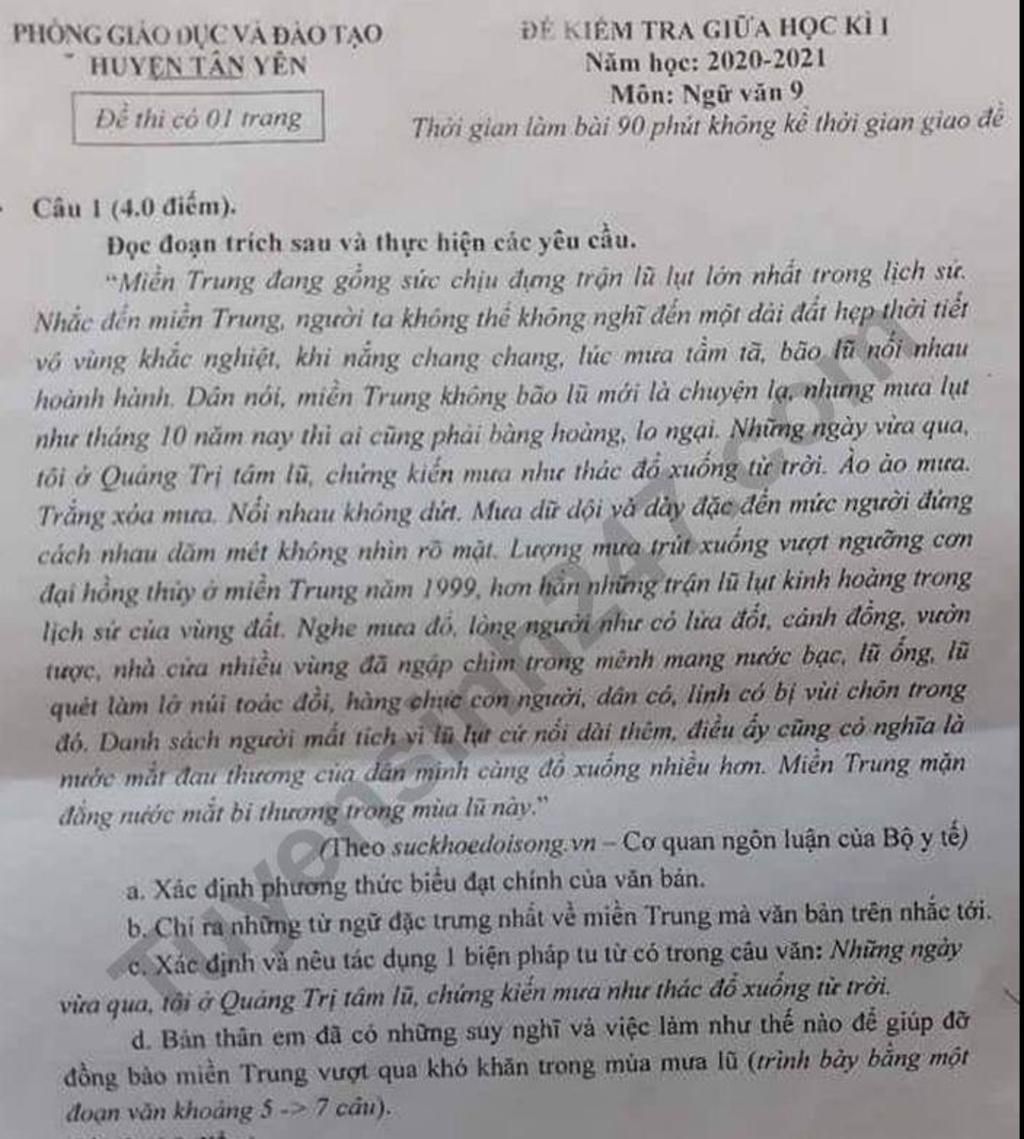 PHÒNG GIÁO DỤC VÀ ĐÀO TẠO
HUYỆN TÂN YÊN
Đề thi có 01 trang
ĐỀ KIỂM TRA GIỮA HỌC KÌ I
Năm học: 2020-2021
Môn: Ngữ văn 9
Thời gian làm bài 90 phút không kể thời gian giao đề
Câu 1 (4.0 điểm).
Đọc đoạn trích sau và thực hiện các yêu cầu.
“Miền Trung đang gồng sức chịu đựng trận lũ lụt lớn nhất trong lịch sử.
Nhắc đến miền Trung, người ta không thể không nghĩ đến một dải đất hẹp thời tiết
vô vùng khắc nghiệt, khi nắng chang chang, lúc mưa tầm tã, bão lũ nối nhau
hoành hành. Dân nói, miền Trung không bão lũ mới là chuyện lạ, nhưng mưa lụt
như tháng 10 năm nay thì ai cũng phải bàng hoàng, lo ngại. Những ngày vừa qua,
tôi ở Quảng Trị tâm lũ, chứng kiến mưa như thác đổ xuống từ trời. Ào ào mưa.
Trắng xóa mưa. Nối nhau không dứt. Mưa dữ dội và dày đặc đến mức người đứng
cách nhau dăm mét không nhìn rõ mặt. Lượng mưa trút xuống vượt ngưỡng cơn
đại hồng thủy ở miền Trung năm 1999, hơn hẳn những trận lũ lụt kinh hoàng trong
lịch sử của vùng đất. Nghe mưa đổ, lòng người như có lửa đốt, cánh đồng, vườn
tược, nhà cửa nhiều vùng đã ngập chìm trong mênh mang nước bạc, lũ ống, lũ
quét làm lở núi toác đồi, hàng chục con người, dân có, lính có bị vùi chôn trong
đó. Danh sách người mất tích vì lũ lụt cứ nối dài thêm, điều ấy cũng có nghĩa là
nước mắt đau thương của dân mình càng đổ xuống nhiều hơn. Miền Trung mặn
đắng nước mắt bi thương trong mùa lũ này.”
(Theo suckhoedoisong.vn – Cơ quan ngôn luận của Bộ y tế)
a. Xác định phương thức biểu đạt chính của văn bản.
b. Chỉ ra những từ ngữ đặc trưng nhất về miền Trung mà văn bản trên nhắc tới.
c. Xác định và nêu tác dụng 1 biện pháp tu từ có trong câu văn: Những ngày
vừa qua, tôi ở Quảng Trị tâm lũ, chứng kiến mưa như thác đổ xuống từ trời.
d. Bản thân em đã có những suy nghĩ và việc làm như thế nào để giúp đỡ
đồng bào miền Trung vượt qua khó khăn trong mùa mưa lũ (trình bày bằng một
đoạn văn khoảng 5 -> 7 câu).
Tuyensinh247.com